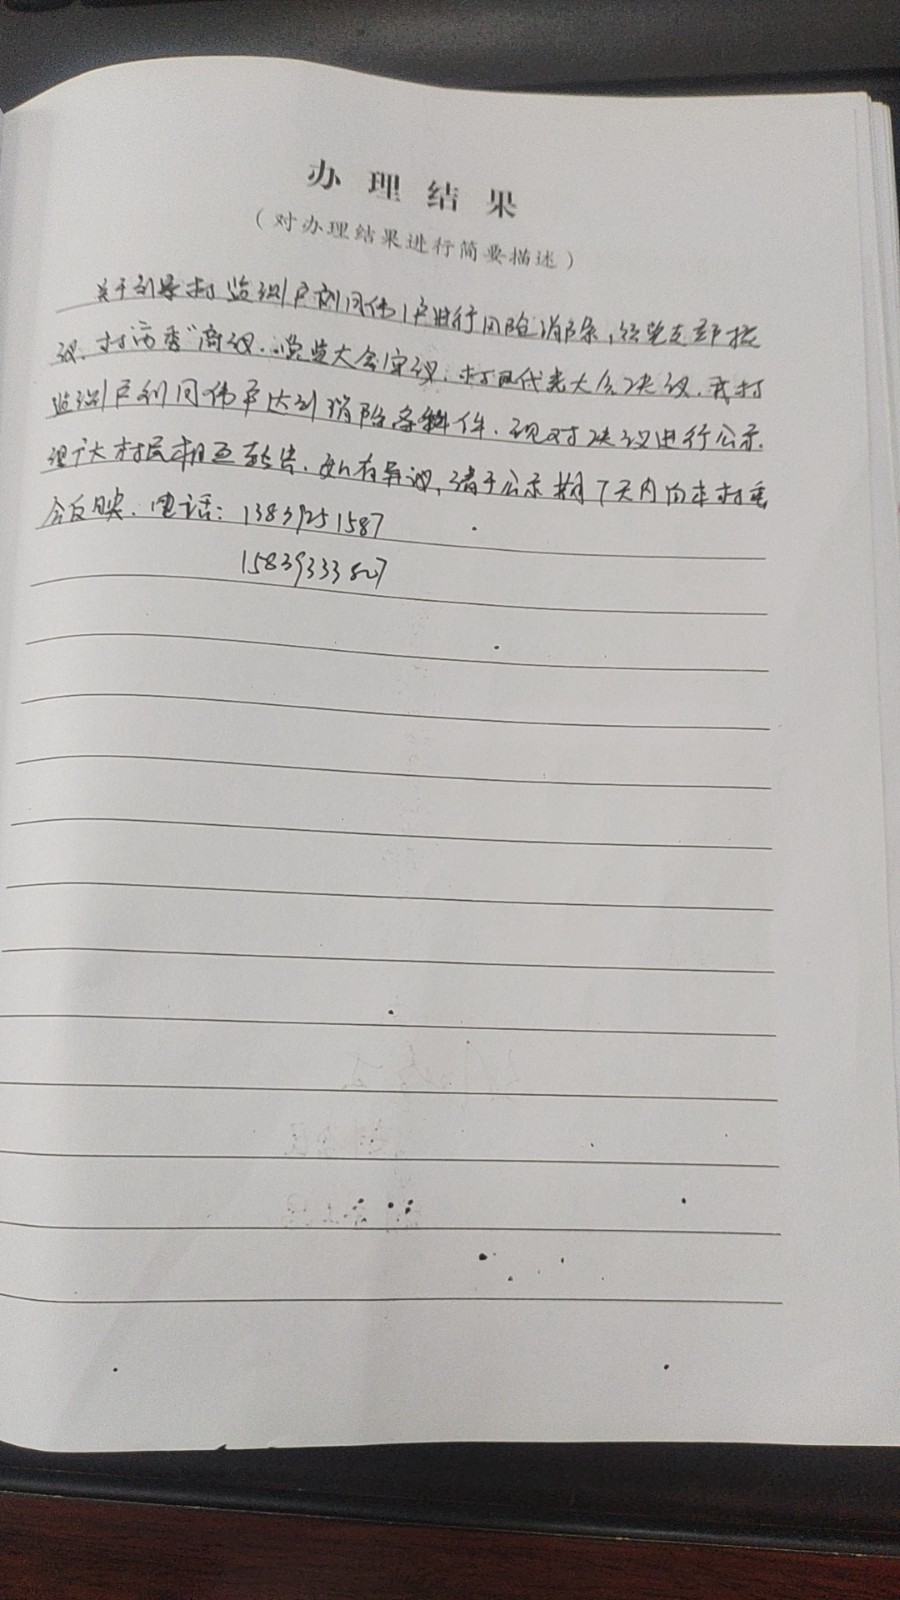 办理结果
（对办理结果进行简要描述）
关于刘寨村监测户刘同伟1户进行风险消除，经党支部提
议、村"两委"商议、党员大会审议、村民代表大会决议，我村
监测户刘同伟户达到消除条件，现对决议进行公示
望广大村民相互转告，如有异议，请于公示期7天内向本村委
会反映．电话：13839251587
15839333807